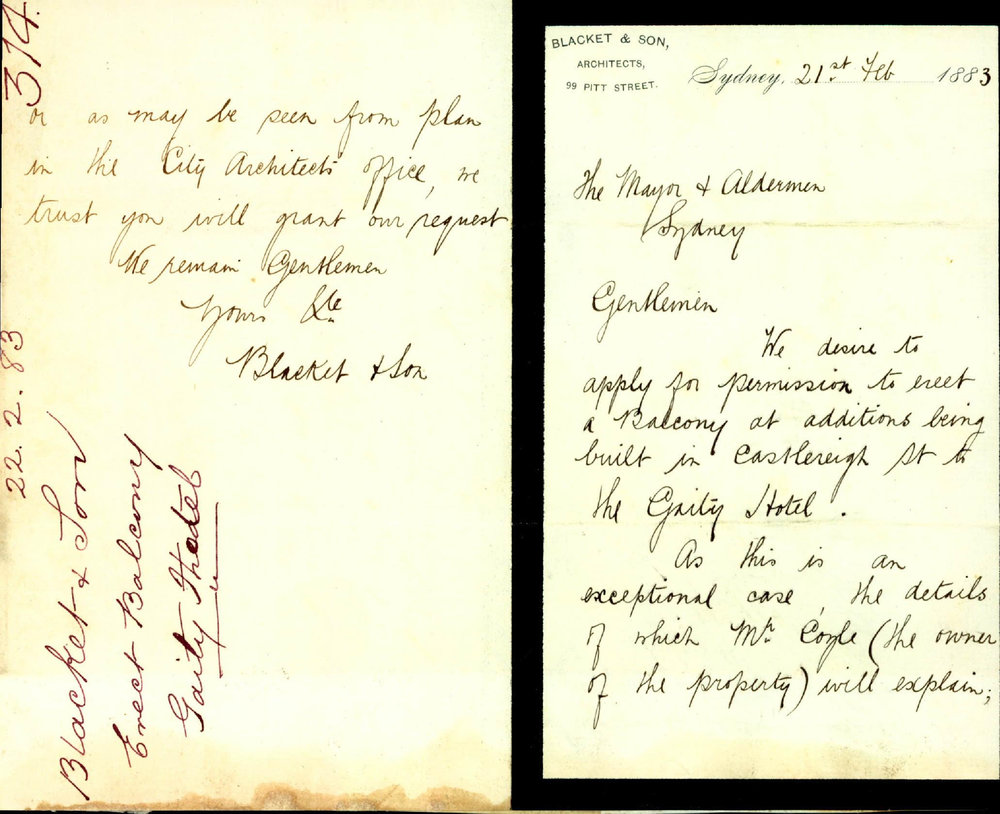 BLACKET & SON,
ARCHITECTS,
99 PITT STREET.
Sydney, 21st Feb 1883
The Mayor & Aldermen
Sydney
Gentlemen
We desire to
apply for permission to erect
a Balcony at additions being
built in Castlereigh St to
the Gaity Hotel.
As this is an
exceptional case, the details
of which Mr Coyle (the owner
of the property) will explain;
or as may be seen from plan
in the City Architects office, we
trust you will grant our request
We remain Gentlemen
Yours &c
Blacket & Son
314.
22.2.83
Blacket & Son
Erect Balcony
Gaity Hotel